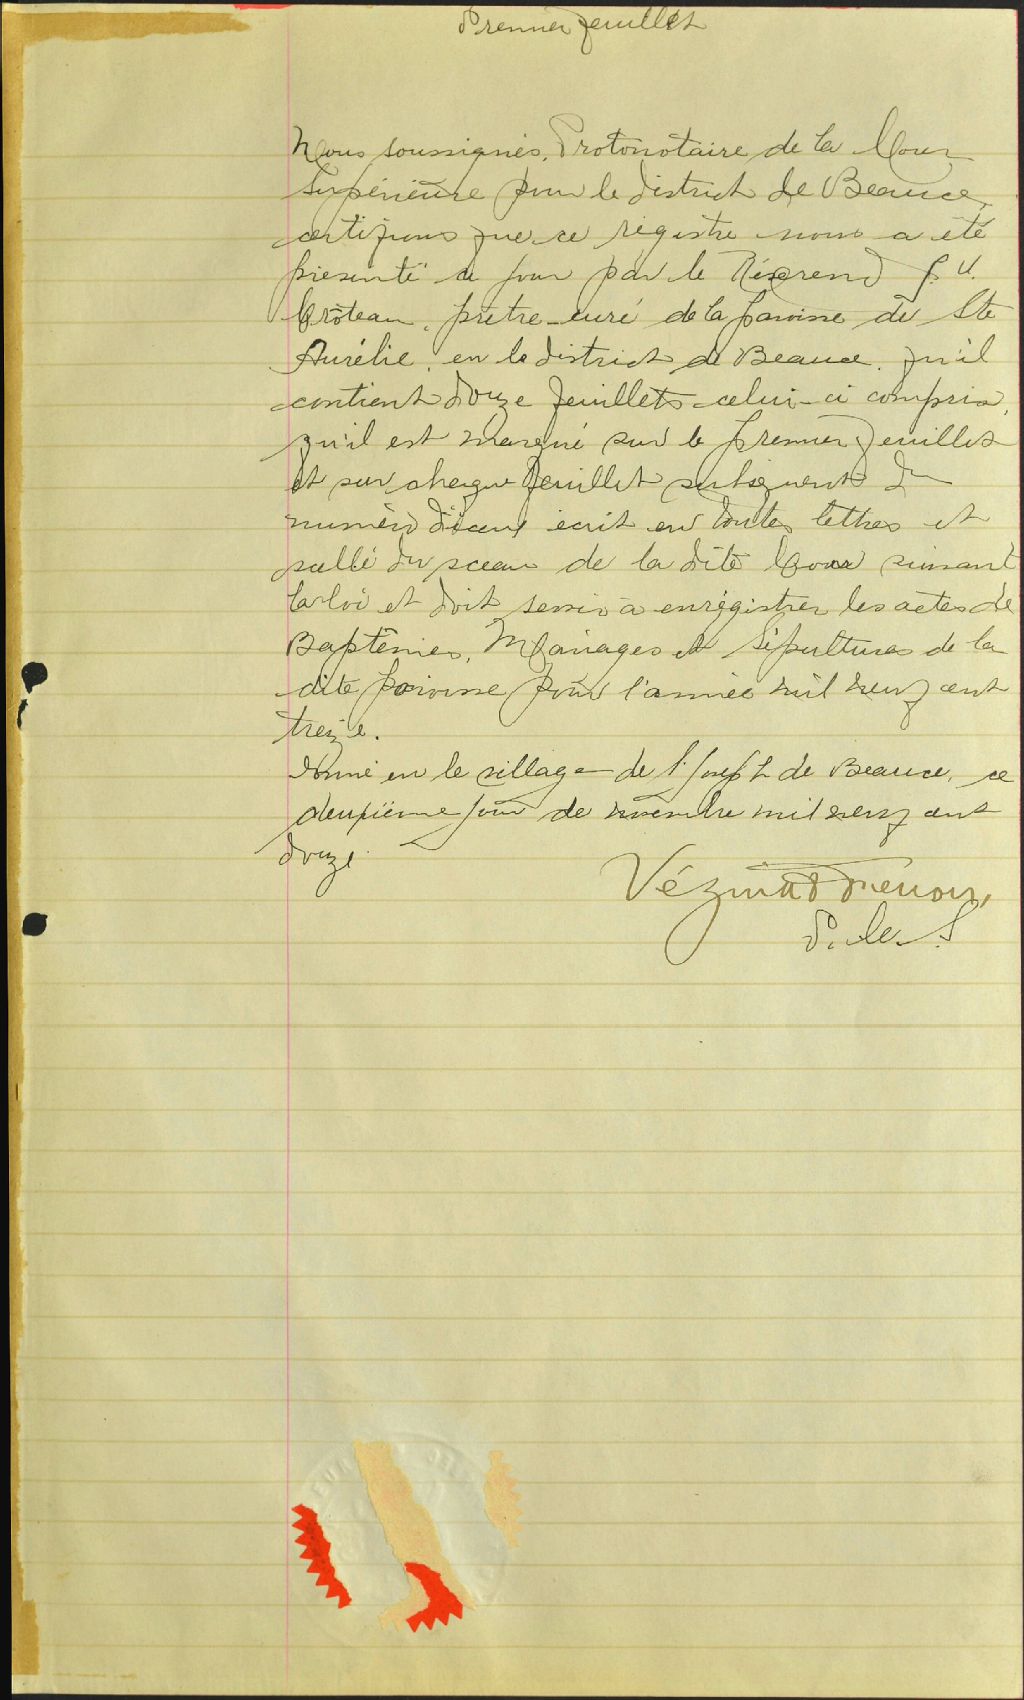 Premier feuillet
Nous soussignés, Protonotaire de la Cour
Supérieure pour le district de Beauce,
certifions que ce régistre nous a été
présenté ce jour par le Révérend J. U.
Croteau, prêtre-curé de la paroisse de Ste
Aurélie, en le district de Beauce, qu'il
contient douze feuillets celui-ci compris,
qu'il est marqué sur le premier feuillet
et sur chaque feuillet subséquent du
numéro d'iceux écrit en toutes lettres et
scellé du sceau de la dite Cour suivant
la loi et doit servir à enrégistrer les actes de
Baptêmes, Mariages et Sépultures de la
dite paroisse pour l'année mil neuf cent
treize.
Donné en le village de St Joseph de Beauce, ce
deuxième jour de novembre mil neuf cent
douze.
Vézina
P. C. S.